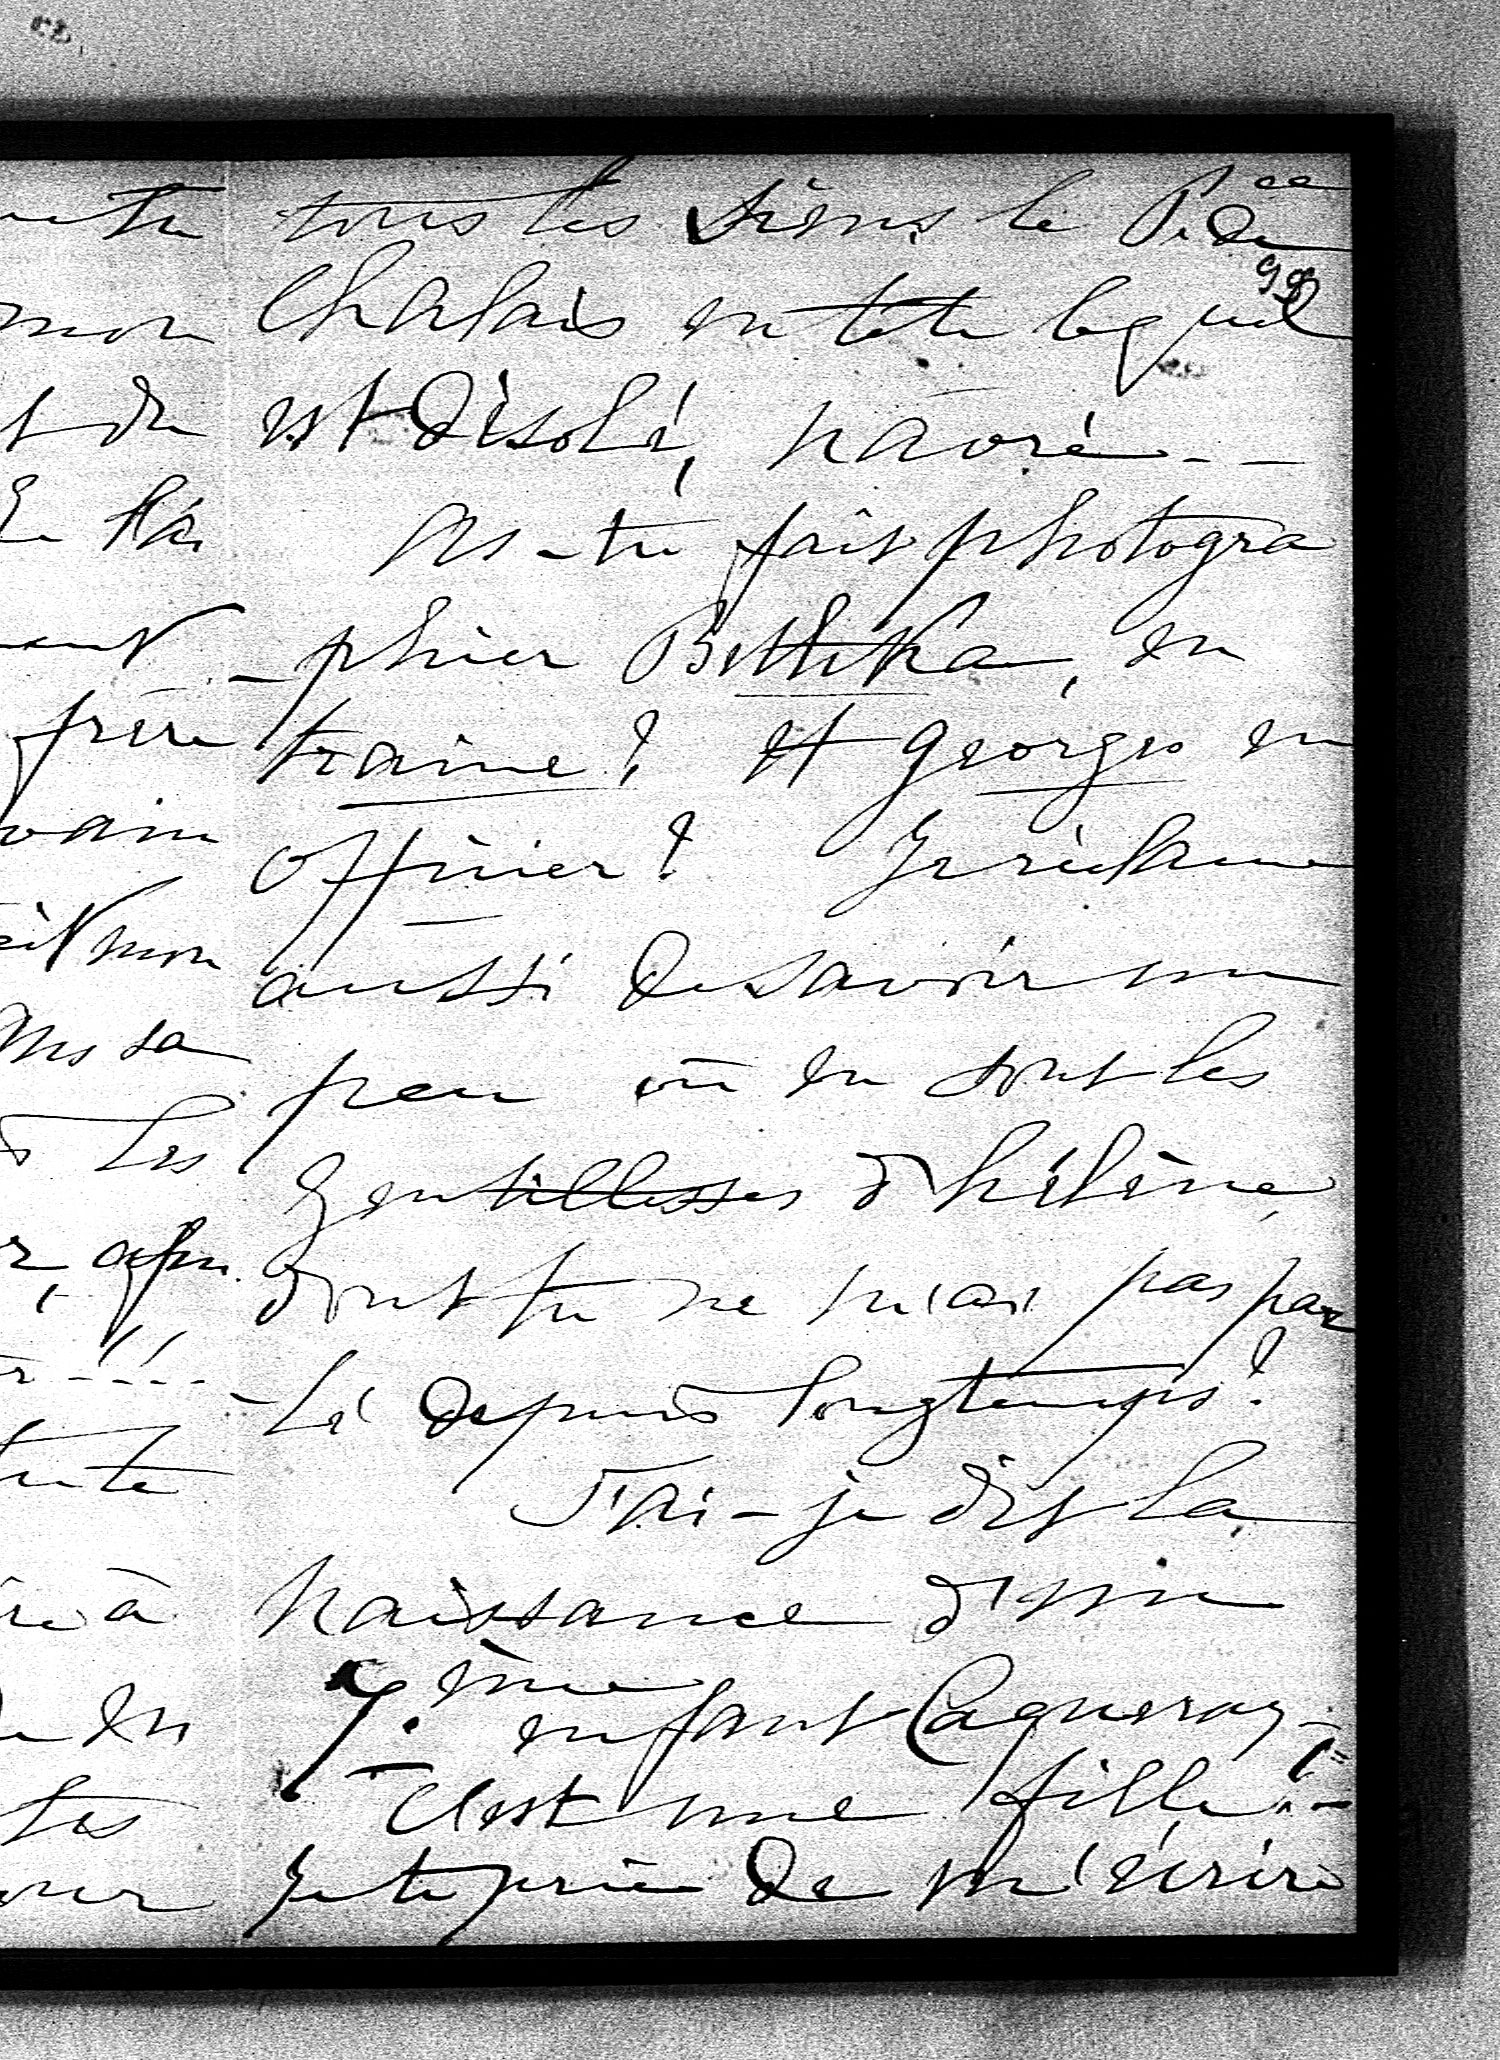 tous les siens, le P.ce de
99
Chalais en tête lequel
est désolé, navré - -
As-tu fait photogra
-phier Bettika, en
traine ? et Georges en
officier ? Je réclame
aussi de savoir un
peu où en sont les
gentillesses d'hélène,
dont tu ne m'as pas par
-lé depuis longtemps ?
T'ai-je dit la
naissance d'un
7.ème enfant Cagneray -
C'est une fille ! -
Je te prie de m'écrire
mon
frère
mon
sa
les
afin
à
en